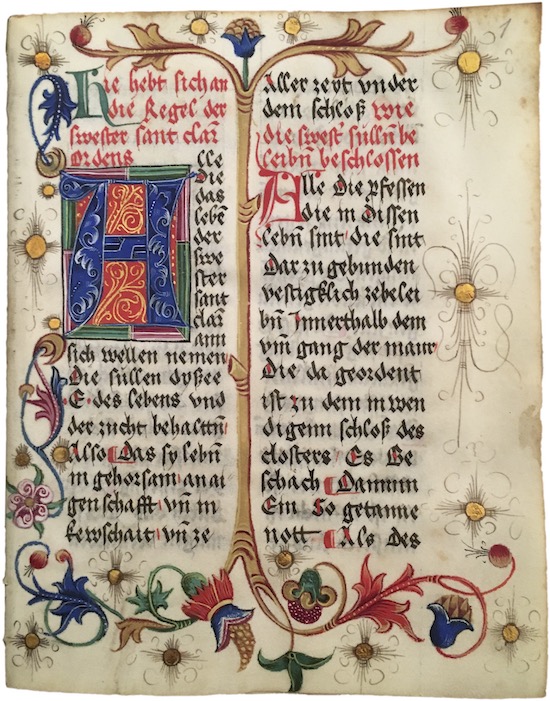 1
Hie hebt sich an
die Regel der
swester sant clarn
ordens
Alle
die
das
lebn̄
der
swe
ster
sant
clarn̄
ann
sich wellen nemen
Die süllen dysee
·E· des lebens vnd
der zucht behalttn̄
Also Das sy lebn̄
in gehorsam an ai
gen schafft vn̄ in
kewschait vn̄ ze
Aller zeyt vnder
dem schloß wie
die swest süllnn̄ be
leibn̄ beschlossen
Alle die pfessen
die in dissen
lebn̄ sint die sint
dar zu gebunden
vestigklich zebelei
bn̄ Innerthalb dem
vm̄ gang der maur
Die da geordent
ist zu dem in wen
digenn schloß des
closters Es Be
schäch Dannn
Ein So getanne
nott Als des